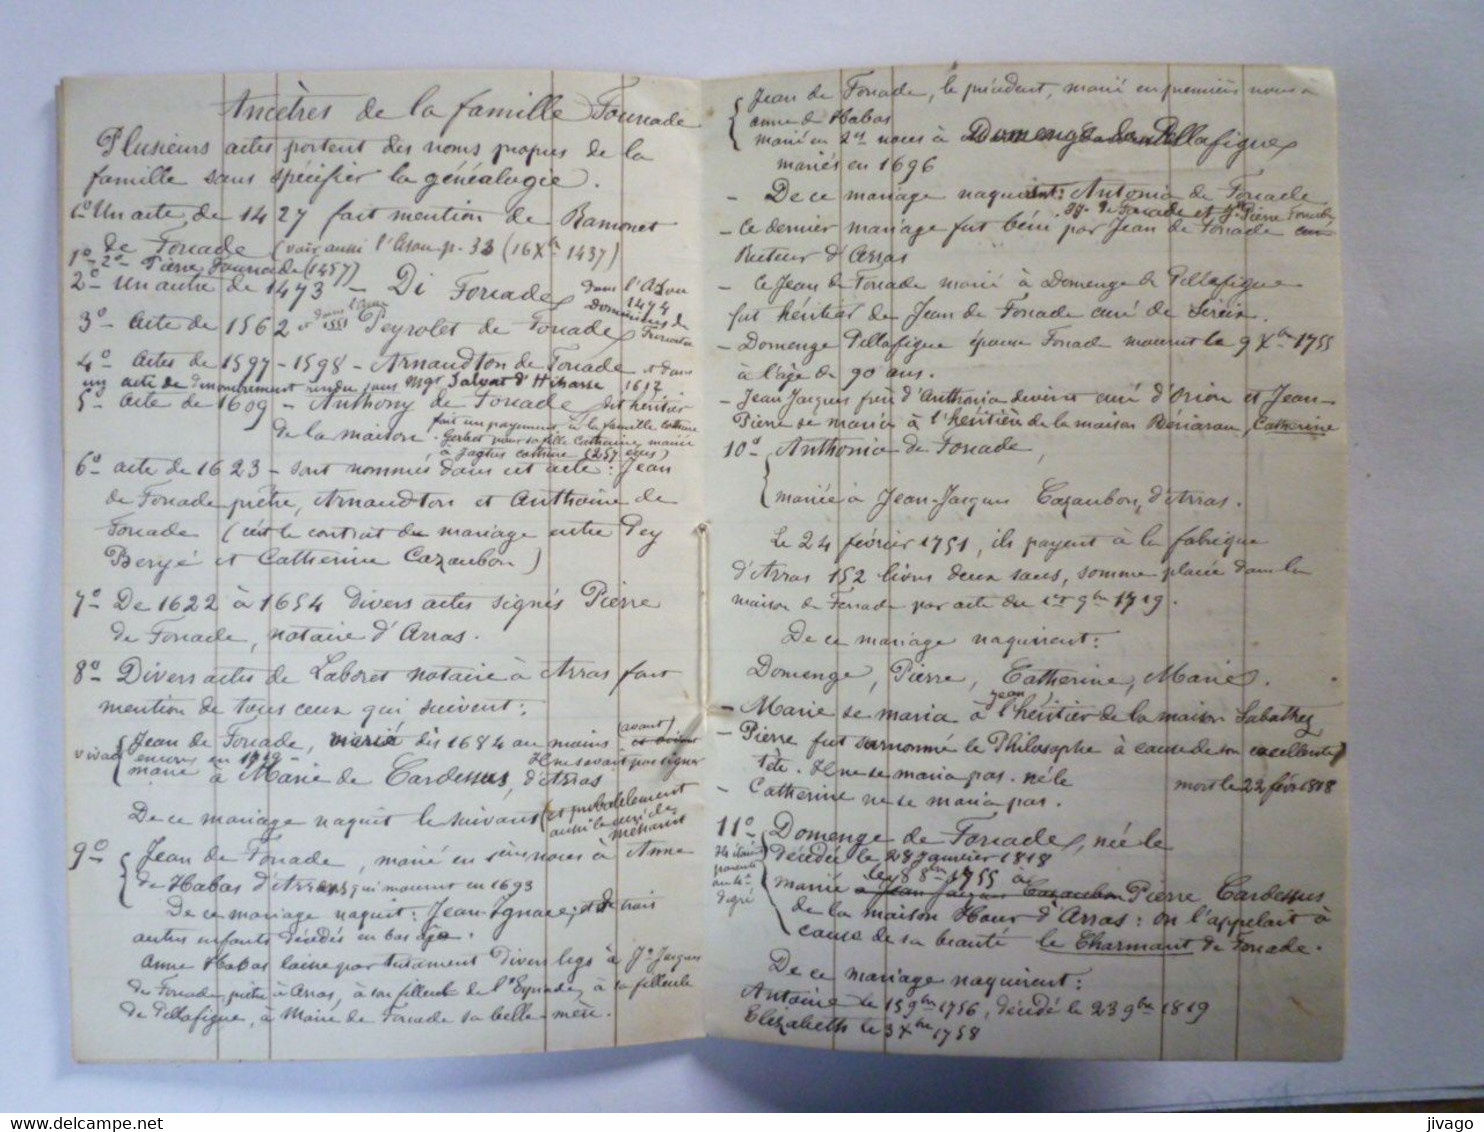 Ancêtres de la famille Fourcade
Plusieurs actes portent des noms propres de la
famille sans spécifier la généalogie.
1º Un acte de 1427 fait mention de Ramonet
de Forcade (voir aussi l'Asou p. 33 (16 Xbre 1437)
1º-2º- Pierre Fourcade (1457)
2º- Un autre de 1473 - Di Forcade dans l'Asou
1474
Domenius de
3º- Acte de 1562 et 1551 Peyrolet de Forcade
4º- Actes de 1597-1598 - Arnaudton de Forcade et dans
un acte de dénombrement rendu sous Mgr Salvat d'Hiharse 1612
5º- Acte de 1609 - Anthony de Forcade dit héritier
de la maison. fait un payement à la famille
pour sa fille Catherine mariée
à (257 écus)
6º- acte de 1623 - sont nommés dans cet acte: Jean
de Forcade prêtre, Arnaudton et Anthoine de
Forcade (c'est le contrat de mariage entre Pey
Bergé et Catherine Cazaubon)
7º- De 1622 à 1654 divers actes signés Pierre
de Forcade, notaire d'Arras.
8º Divers actes de Laboret notaire à Arras font
mention de tous ceux qui suivent:
Jean de Forcade, marié dès 1684 au moins (avant)
vivait encore en 1719 - Il ne savait pas signer
marié à Marie de Cardessus, d'Arras
De ce mariage naquit le suivant (et probablement
aussi le curé de
Méharin
9º Jean de Forcade, marié en 1ères noces à Anne
de Habas d'Arros qui mourut en 1693
De ce mariage naquit: Jean-Ignace, et de trois
autres enfants décédés en bas âge.
Anne Habas laisse par testament divers legs à Jn Jacques
de Forcade, prêtre à Arras, à son filleul de l'Espade, à sa filleule
de Pellafigue, à Marie de Forcade sa belle-mère.
Jean de Forcade, le précédent, marié en premières noces à
anne de Habas
marié en 2es noces à Domenge de Pellafigue
mariés en 1696
- De ce mariage naquirent: Antonia de Forcade
JJ. de Forcade et Jn Pierre Forcade
- Ce dernier mariage fut béni par Jean de Forcade curé
Recteur d'Arras
- Ce Jean de Forcade marié à Domenge de Pellafigue
fut héritier de Jean de Forcade curé de Sireix.
- Domenge Pellafigue épouse Forcade mourut le 9 Xbre 1755
à l'âge de 90 ans.
- Jean Jacques frère d'Anthonia devint curé d'Orion et Jean-
Pierre se maria à l'héritière de la maison Bériarau, Catherine
10º Anthonia de Forcade,
mariée à Jean-Jacques Cazaubon, d'Arras.
Le 24 février 1751, ils payent à la fabrique
d'Arras 152 livres deux sous, somme placée dans la
maison de Forcade par acte du 1er 9bre 1719.
De ce mariage naquirent:
Domenge, Pierre, Catherine, Marie.
- Marie se maria à Jean l'héritier de la maison Sabathez
- Pierre fut surnommé le Philosophe à cause de son excellente
tête. Il ne se maria pas. né le mort le 22 fév. 1808
- Catherine ne se maria pas.
11º Domenge de Forcade, née le
décédée le 28 Janvier 1818
Ils étaient
parents
au 4e
degré
mariée le 8 8bre 1755 à
à Jean Jacques Cazaubon Pierre Cardessus
de la maison Hour d'Arras: on l'appelait à
cause de sa beauté le Charmant de Forcade.
De ce mariage naquirent:
Antoine le 15 9bre 1756, décédé le 23 9bre 1819
Elizabeth le 3 Xbre 1758
delcampe.net
jivago